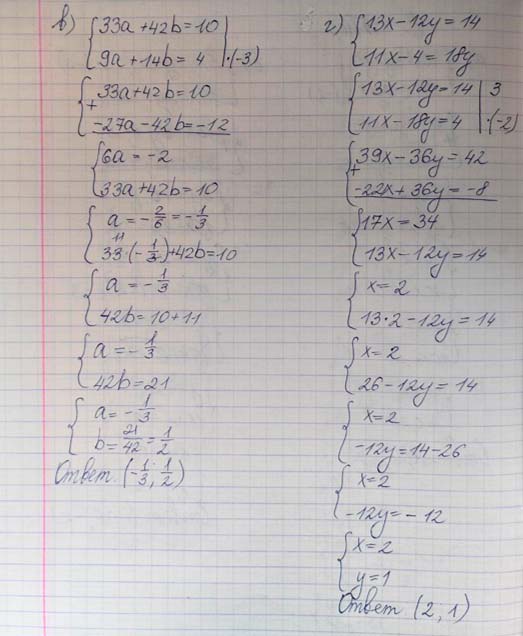 в) {33a + 42b = 10 |
9a + 14b = 4 | ·(-3)
{33a + 42b = 10
+
-27a - 42b = -12
{6a = -2
33a + 42b = 10
{a = -2/6 = -1/3
11
33·(-1/3) + 42b = 10
{a = -1/3
42b = 10 + 11
{a = -1/3
42b = 21
{a = -1/3
b = 21/42 = 1/2
Ответ: (-1/3, 1/2)
г) {13x - 12y = 14
11x - 4 = 18y
{13x - 12y = 14 | 3
11x - 18y = 4 | ·(-2)
{39x - 36y = 42
+
-22x + 36y = -8
{17x = 34
13x - 12y = 14
{x = 2
13·2 - 12y = 14
{x = 2
26 - 12y = 14
{x = 2
-12y = 14 - 26
{x = 2
-12y = -12
{x = 2
y = 1
Ответ (2, 1)